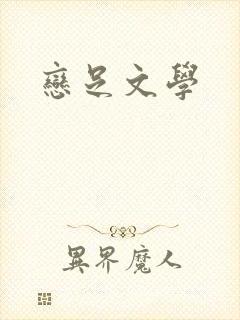 戀足文學
異界魔人